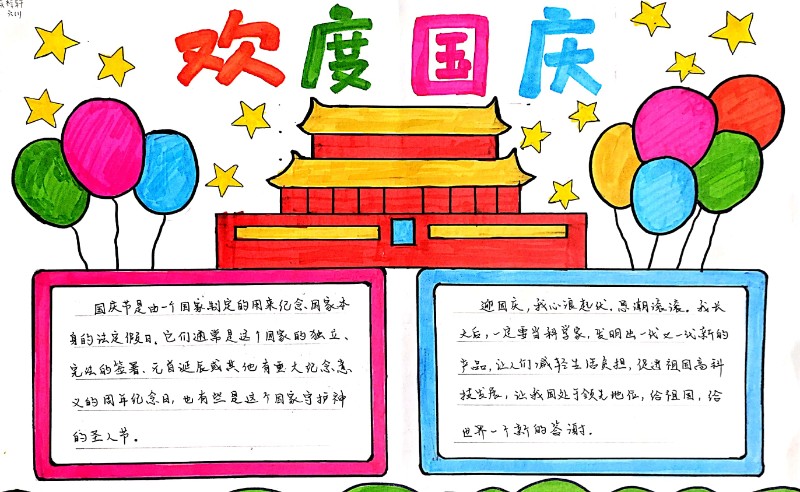 欢度国庆
国庆节是由一个国家制定的用来纪念国家本
身的法定假日,它们通常是这个国家的独立、
宪法的签署、元首诞辰或其他有重大纪念意
义的周年纪念日,也有些是这个国家守护神
的圣人节。
迎国庆,我心浪起伏,思潮滚滚。我长
大后,一定要当科学家,发明出一代又一代新的
产品,让人们减轻生活负担,促进祖国高科
技发展,让我国处于领先地位,给祖国,给
世界一个新的答谢.